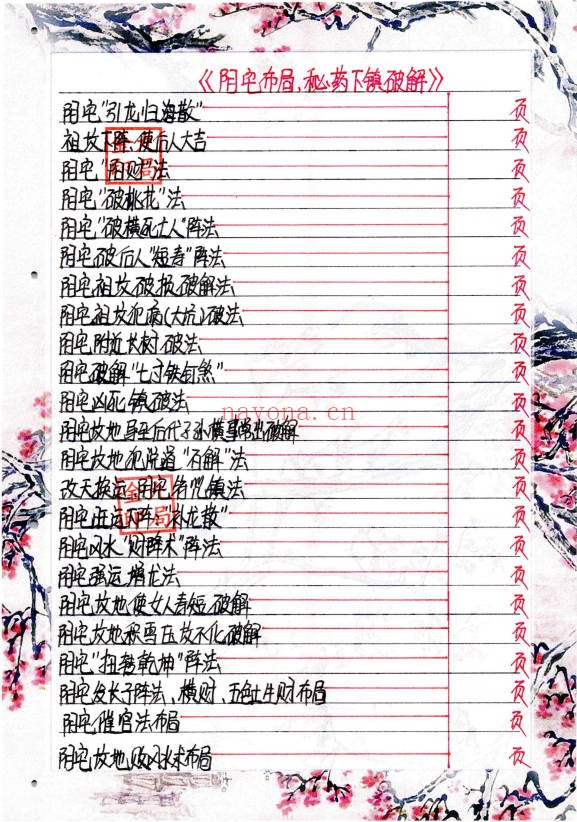 《阴宅布局、秘药下镇破解》
阴宅“引龙归海散” 页
祖坟下葬,使后人大吉 页
阴宅“阴财”法 页
阴宅“破桃花”法 页
阴宅“破横死亡人”阵法 页
阴宅破后人“短寿”阵法 页
阴宅祖坟破损破解法 页
阴宅祖坟犯病(大坑)破法 页
阴宅附近大树破法 页
阴宅破解“七寸铁钉煞” 页
阴宅凶死镇破法 页
nayona.cn
阴宅坟地 后代子孙横事常出破解 页
阴宅坟地犯说道 解”法 页
改天换运 阴宅符咒镇法 页
阴宅旺运下阵:“补龙散” 页
阴宅风水“财降术”阵法 页
阴宅强运增龙法 页
阴宅坟地使女人寿短破解 页
阴宅坟地积雪压坟不化破解 页
阴宅“扭转乾坤”阵法 页
阴宅发长子阵法、横财、五色土生财布局 页
阴宅催官法布局 页
阴宅坟地败风水术布局 页